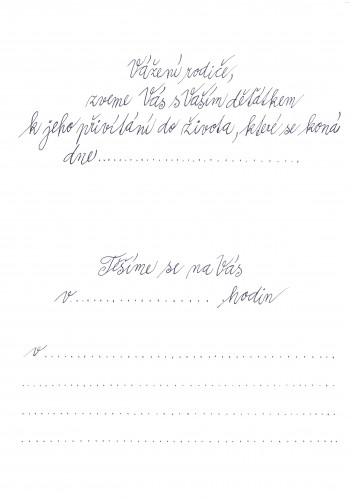 Vážení rodiče,
zveme Vás s Vaším děťátkem
k jeho přivítání do života, které se koná
dne.......................................
Těšíme se na Vás
v........................ hodin
v.................................................
..................................................
..................................................
..................................................